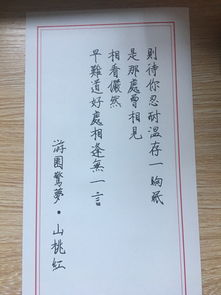 則待你忍耐溫存一晌眠
是那處曾相見
相看儼然
早難道好處相逢無一言
游園驚夢·山桃紅